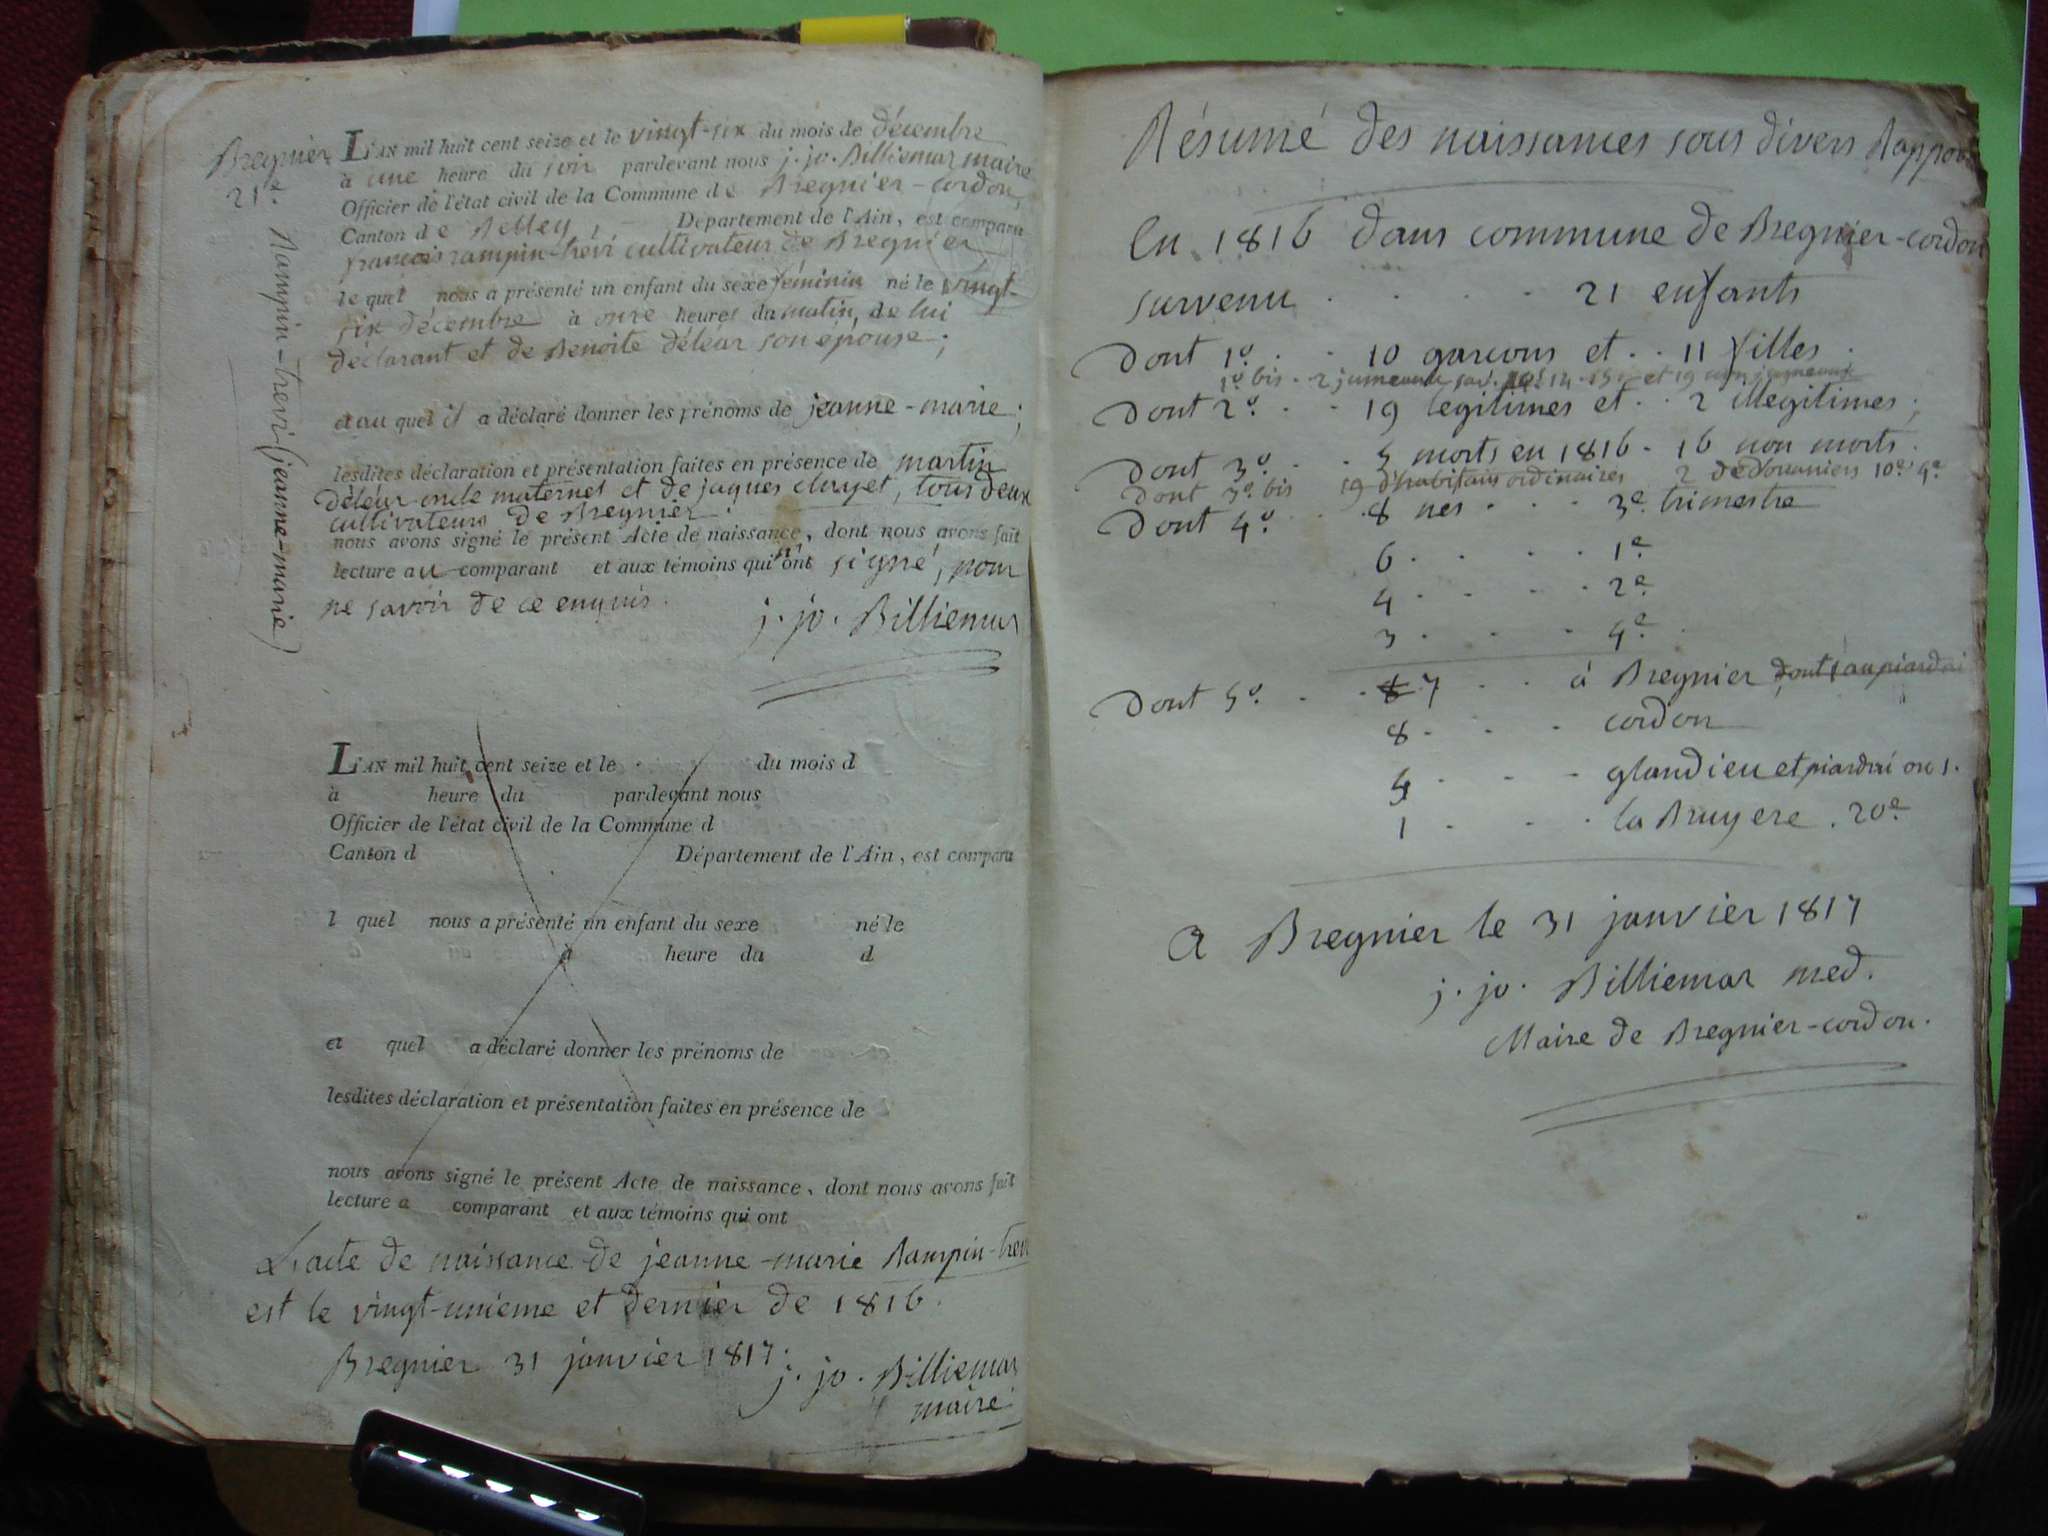 Bregnier
21e.
Rampin-trevi (jeanne-marie)
L'AN mil huit cent seize et le vingt-six du mois de décembre
à une heure du soir pardevant nous j. jo. Billiemas maire
Officier de l'état civil de la Commune de Bregnier-cordon,
Canton de Belley, Département de l'Ain, est comparu
francois rampin-trevi cultivateur de Bregnier
le quel nous a présenté un enfant du sexe féminin né le vingt-
six décembre à onze heures du matin, de lui
déclarant et de Benoite déléar son épouse;
et au quel il a déclaré donner les prénoms de jeanne-marie;
lesdites déclaration et présentation faites en présence de martin
déléar oncle maternel et de jaques, tous deux
cultivateurs de Bregnier.
nous avons signé le présent Acte de naissance, dont nous avons fait
lecture au comparant et aux témoins qui n'ont signé, pour
ne savoir de ce enquis.
j. jo. Billiemas
L'AN mil huit cent seize et le du mois d
à heure du pardevant nous
Officier de l'état civil de la Commune d
Canton d Département de l'Ain, est comparu
l quel nous a présenté un enfant du sexe né le
à heure du d
et quel a déclaré donner les prénoms de
lesdites déclaration et présentation faites en présence de
nous avons signé le présent Acte de naissance, dont nous avons fait
lecture a comparant et aux témoins qui ont
L'acte de naissance de jeanne-marie Rampin-trevi
est le vingt-unieme et dernier de 1816.
Bregnier 31 janvier 1817.
j. jo. Billiemas
maire
Résumé des naissances sous divers Rappor
En 1816 dans commune de Bregnier-cordon
survenu . . . . 21 enfants
Dont 1o. . . 10 garcons et . . 11 filles .
1o bis . 2 jumeaux 14 . 15 et 19
Dont 2o. . . 19 legitimes et . . 2 illegitimes;
Dont 3o. . . 5 morts en 1816 . 16 non morts .
Dont 3o. bis 19 d'habitans ordinaires 2 de douaniers 10e. 9e.
Dont 4o. . . 8 nes . . . 3e. trimestre
6 . . . . 1e
4 . . . . 2e.
3 . . . 4e.
Dont 5o. . . 8 7 . . à Bregnier dont 1 au piardai
8 . . . cordon
5 . . . glandieu et piardai ou 1.
1 . . . la Bruyere . 20e
A Bregnier le 31 janvier 1817
j. jo. Billiemas med.
Maire de Bregnier-cordon.